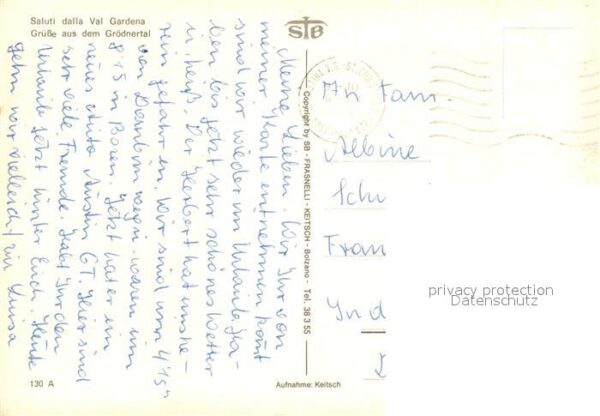 Saluti dalla Val Gardena
Grüße aus dem Grödnertal
STB
Meine Lieben. Wie Ihr von
meiner Karte entnehmen könnt
sind wir wieder im Urlaub. Ha-
ben bis jetzt sehr schönes Wetter
u. heiß. Der Herbert hat uns he-
rein gefahren. Wir sind um 4 15h
von Dornbirn weg u. waren um
8 15 in Bozen. Jetzt hat er ein
neues Auto Austin GT. Hier sind
sehr viele Fremde. Habt Ihr den
Urlaub jetzt hinter Euch. Heute
gehn wir vielleicht zu Luisa
Copyright by SB - FRASNELLI - KEITSCH - Bolzano - Tel. 38 3 55
An Fam.
Albine
Sch
Fran
privacy protection
Datenschutz
130 A
Aufnahme: Keitsch